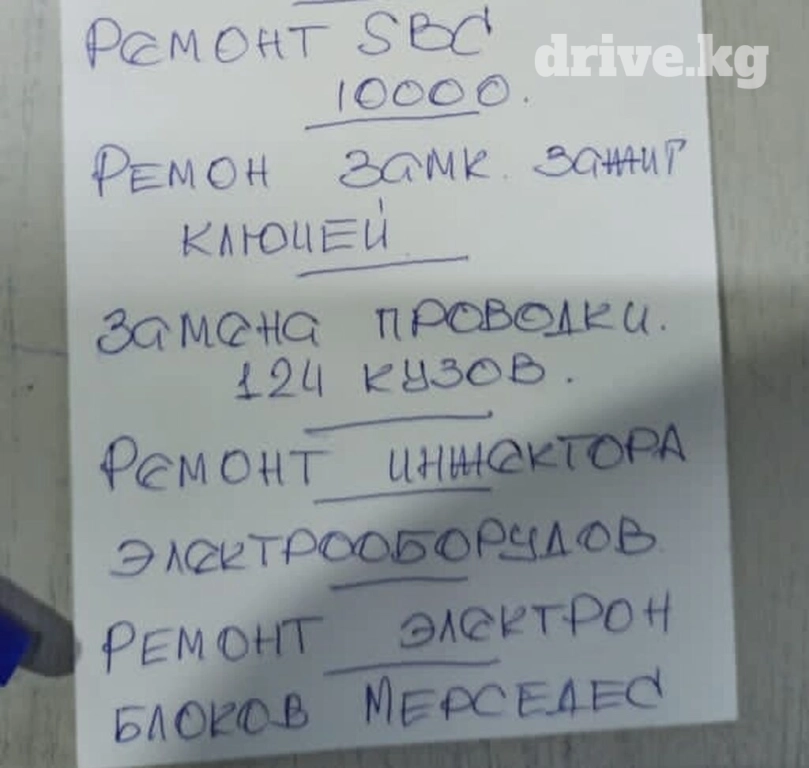 РЕМОНТ SBC
drive.kg
10000.
РЕМОН ЗАМК. ЗАЖИГ
КЛЮЧЕЙ
ЗАМЕНА ПРОВОДКИ.
124 КУЗОВ.
РЕМОНТ ИНЖЕКТОРА
ЭЛЕКТРООБОРУДОВ
РЕМОНТ ЭЛЕКТРОН
БЛОКОВ МЕРСЕДЕС